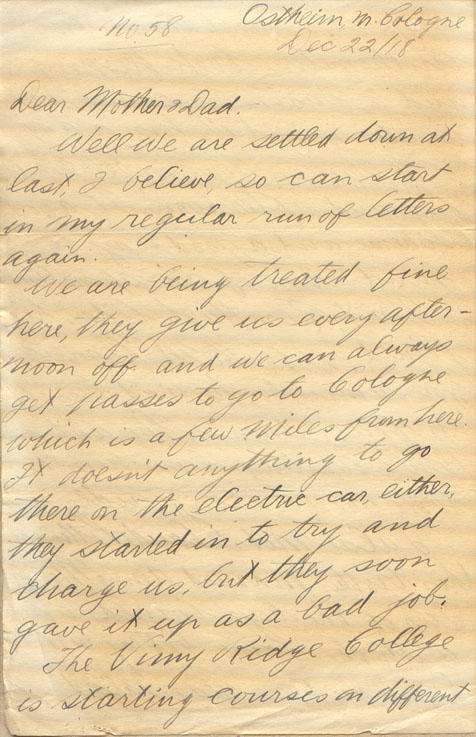 No 58
Ostheim, n. Cologne
Dec 22/18
Dear Mother & Dad.
Well we are settled down at
last, I believe, so can start
in my regular run of letters
again.
We are being treated fine
here, they give us every after-
noon off and we can always
get passes to go to Cologne
which is a few miles from here.
It doesn't anything to go
there on the electric car, either,
they started in to try and
charge us, but they soon
gave it up as a bad job.
The Vimy Ridge College
is starting courses on different